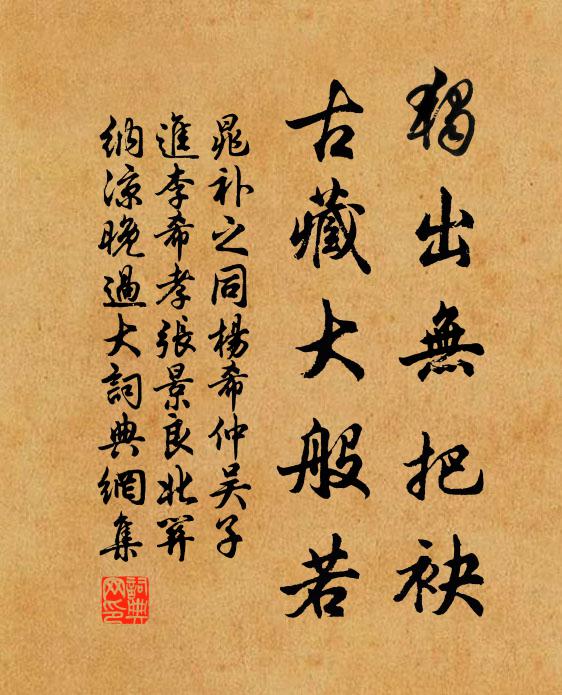 獨出無把袂
古藏大般若
晁補之同楊希仲吴子
進李希孝張景良北開
納涼晚過大詞典網集
詞典网印